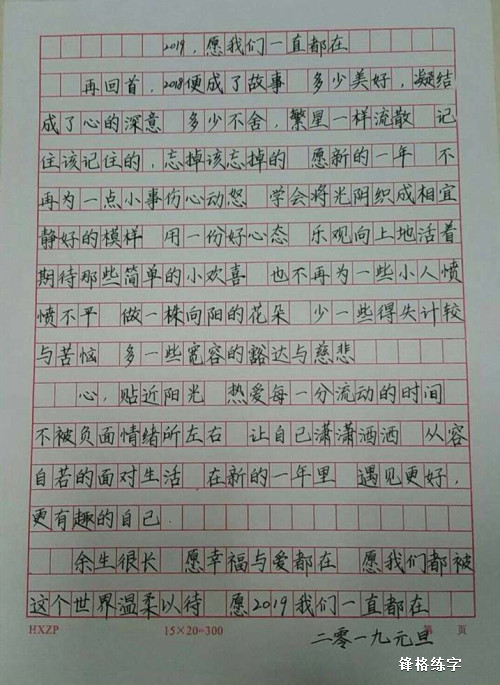 2019，愿我们一直都在
再回首，2018便成了故事 多少美好，凝结
成了心的深意 多少不舍，繁星一样流散 记
住该记住的，忘掉该忘掉的 愿新的一年 不
再为一点小事伤心动怒 学会将光阴织成相宜
静好的模样 用一份好心态 乐观向上地活着
期待那些简单的小欢喜 也不再为一些小人愤
愤不平 做一株向阳的花朵 少一些得失计较
与苦恼 多一些宽容的豁达与慈悲
心，贴近阳光 热爱每一分流动的时间
不被负面情绪所左右 让自己潇潇洒洒 从容
自若的面对生活 在新的一年里 遇见更好，
更有趣的自己.
余生很长 愿幸福与爱都在 愿我们都被
这个世界温柔以待 愿2019我们一直都在
HXZP 15×20=300 第 页
二零一九元旦
锋格练字